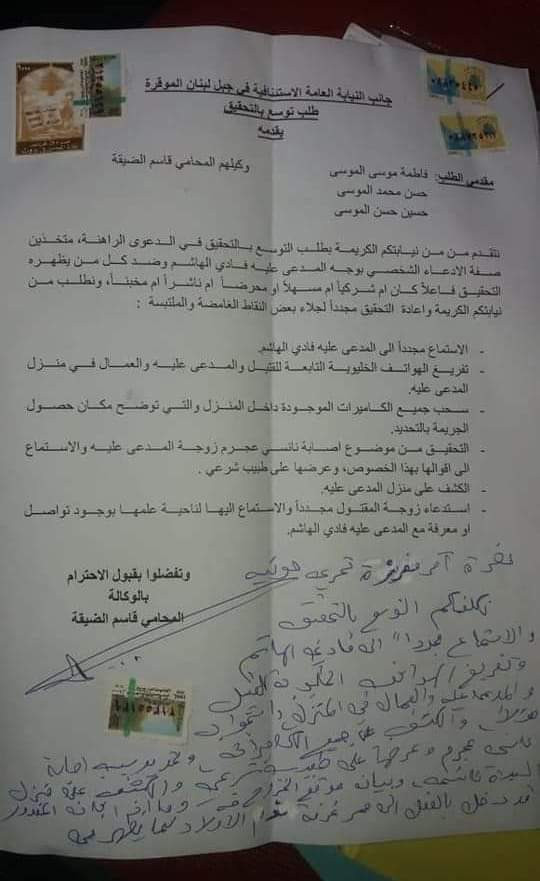 جانب النيابة العامة الاستئنافية في جبل لبنان الموقرة
طلب توسع بالتحقيق
يقدمه
مقدمي الطلب: فاطمة موسى الموسى
وكيلهم المحامي قاسم الضيقة
حسن محمد الموسى
حسين حسن الموسى
نتقدم من من نيابتكم الكريمة بطلب التوسع بالتحقيق في الدعوى الراهنة، متخذين
صفة الادعاء الشخصي بوجه المدعى عليه فادي الهاشم وضد كل من يظهره
التحقيق فاعلاً كان ام شريكاً ام مسهلاً او محرضاً ام ناشراً ام مخبئاً، ونطلب من
نيابتكم الكريمة واعادة التحقيق مجدداً لجلاء بعض النقاط الغامضة والملتبسة :
- الاستماع مجدداً الى المدعى عليه فادي الهاشم.
- تفريغ الهواتف الخليوية التابعة للقتيل والمدعى عليه والعمال في منزل
المدعى عليه.
- سحب جميع الكاميرات الموجودة داخل المنزل والتي توضح مكان حصول
الجريمة بالتحديد.
- التحقيق من موضوع اصابة نانسي عجرم زوجة المدعى عليه والاستماع
الى اقوالها بهذا الخصوص، وعرضها على طبيب شرعي .
- الكشف على منزل المدعى عليه.
- استدعاء زوجة المقتول مجدداً والاستماع اليها لناحية علمها بوجود تواصل
او معرفة مع المدعى عليه فادي الهاشم.
وتفضلوا بقبول الاحترام
بالوكالة
المحامي قاسم الضيقة
حضرة آمر مفرزة تحري
نكلفكم التوسع بالتحقيق
والاستماع مجدداً الى فادي الهاشم
وتفريغ الهواتف الخليوية للقتيل
والمدعى عليه والعمال في المنزل
والكشف على جميع الكاميرات
نانسي عجرم وعرضها على طبيب شرعي
والكشف على منزل
وبيان موقع
قد دخل بالفعل الى ممر غرفة نوم الاولاد كما يظهر في